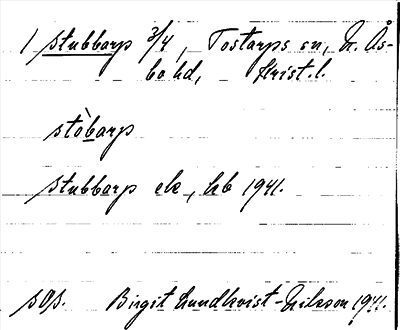 1 Stubbarp 3/4, Tostarps sn, N. Ås-
bo hd, Krist. l.
stòbarp
Stubbarp ek, hb 1941.
Birgit Lundkvist-Nilsson 1941.